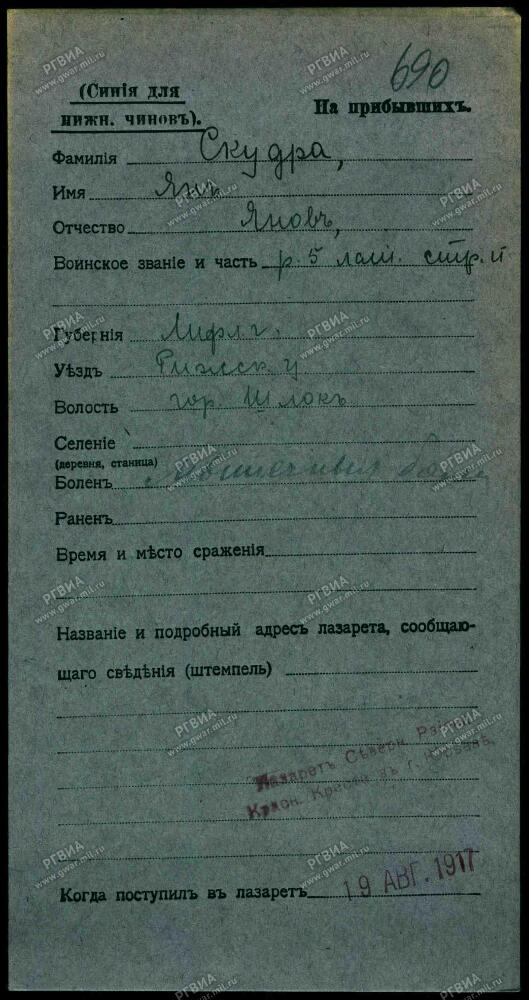 690
(Синія для
нижн. чиновъ).
На прибывшихъ.
Фамилія Скудра,
Имя Янъ
Отчество Яновъ,
Воинское званіе и часть р. 5 лат. стр. п
Губернія Лифл г.
Уѣздъ Рижск у
Волость гор. Шлокъ
Селеніе
(деревня, станица)
Боленъ
Раненъ
Время и мѣсто сраженія
Названіе и подробный адресъ лазарета, сообщаю-
щаго свѣдѣнія (штемпель)
Лазаретъ Сѣверн. Района
Красн. Креста въ г. Юрьевѣ.
Когда поступилъ въ лазаретъ 19 АВГ. 1917